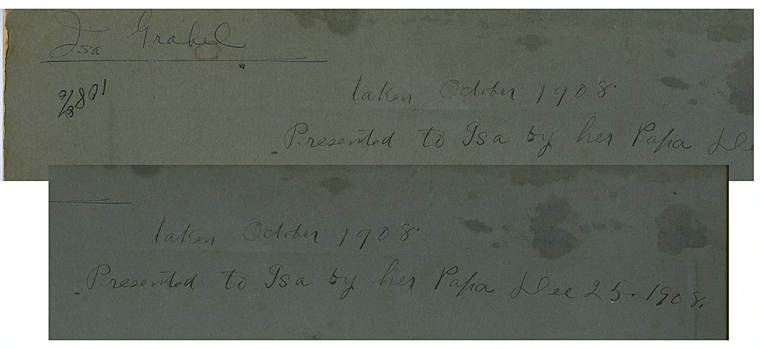 Isa Grakel
taken October 1908.
Presented to Isa by her Papa De
taken October 1908.
Presented to Isa by her Papa Dec 25. 1908.